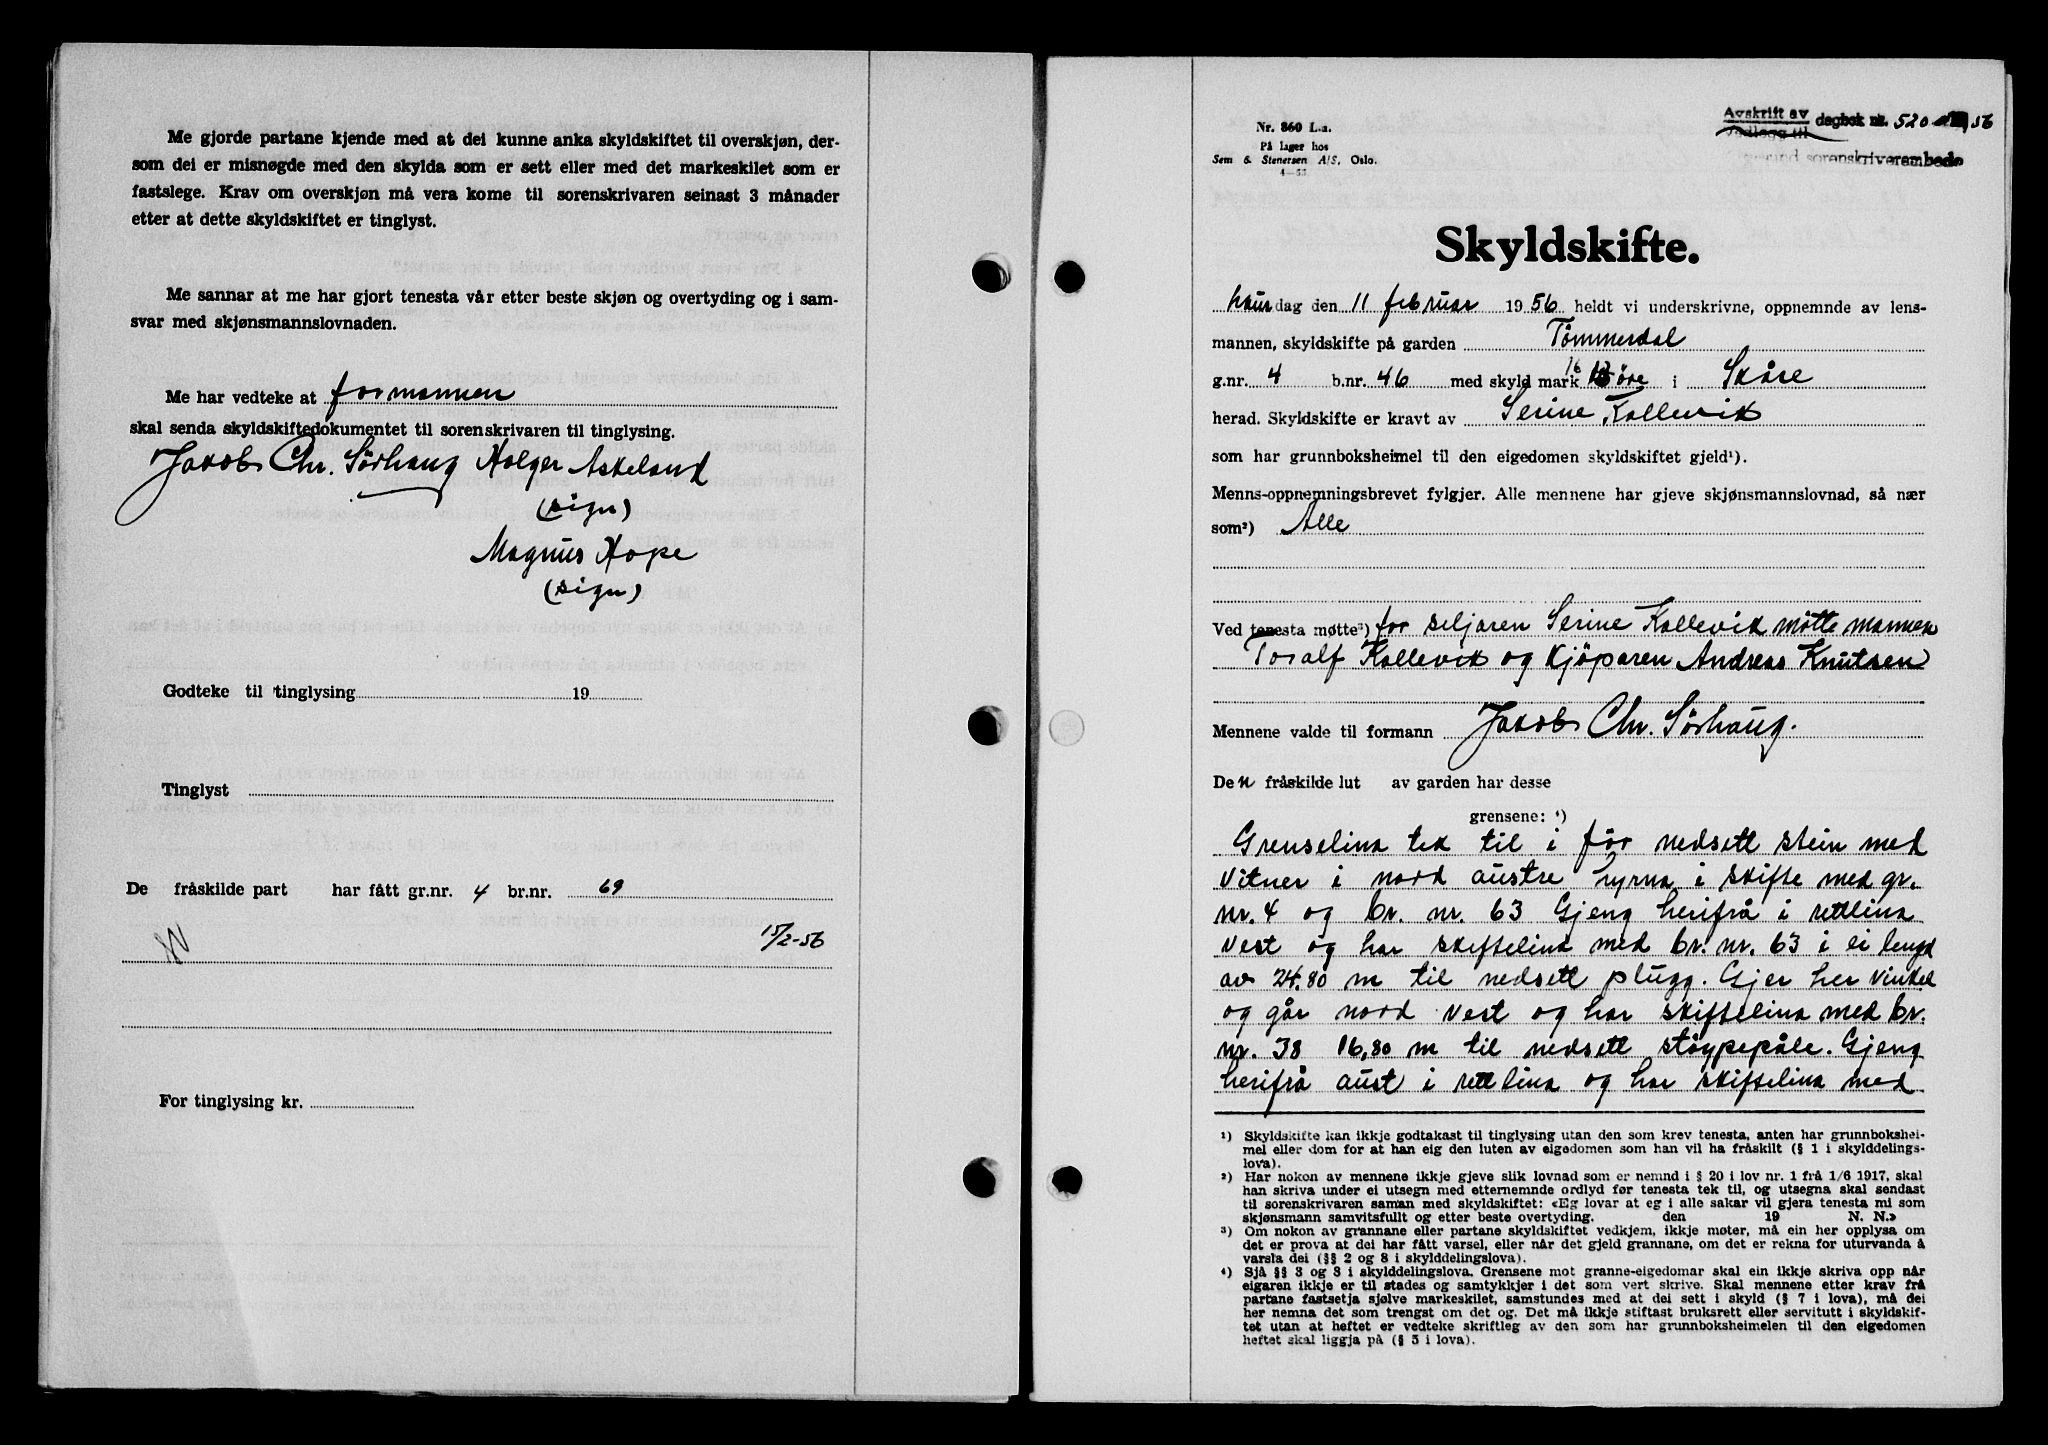 Me gjorde partane kjende med at dei kunne anka skyldskiftet til overskjøn, der-
som dei er misnøgde med den skylda som er sett eller med det markeskilet som er
fastslege. Krav om overskjøn må vera kome til sorenskrivaren seinast 3 månader
etter at dette skyldskiftet er tinglyst.
Me sannar at me har gjort tenesta vår etter beste skjøn og overtyding og i sam-
svar med skjønsmannslovnaden.
Me har vedteke at formannen
skal senda skyldskiftedokumentet til sorenskrivaren til tinglysing.
Jakob Chr. Sörhaug Holger Askeland
(sign)
Magnus Hope
(sign)
Godteke til tinglysing 19
Tinglyst
De fråskilde part har fått gr.nr. 4 br.nr. 69
15/2-56
For tinglysing kr.
Avskrift av
Vedlegg til dagbok nr. 520 1956
sorenskriverembede
Nr. 860 L.a.
På lager hos
Sem & Stenersen A/S, Oslo.
4—53
Skyldskifte.
Laurdag den 11 februar 1956 heldt vi underskrivne, oppnemnde av lens-
mannen, skyldskifte på garden Tømmerdal
g.nr. 4 b.nr. 46 med skyld mark 16 øre i Skåre
herad. Skyldskifte er kravt av Serine Kallevik
som har grunnboksheimel til den eigedomen skyldskiftet gjeld¹).
Menns-oppnemningsbrevet fylgjer. Alle mennene har gjeve skjønsmannslovnad, så nær
som²) Alle
Ved tenesta møtte³) for seljaren Serine Kallevik møtte mannen
Toralf Kallevik og Kjöparen Andreas Knutsen
Mennene valde til formann Jakob Chr. Sörhaug.
Den fråskilde lut av garden har desse
grensene: ⁴)
Grenselina tek til i för nedsett stein med
vitner i nord austre hyrna i skifte med gr.
nr. 4 og br. nr. 63 Gjeng herifrå i rettlina
vest og har skiftelina med br. nr. 63 i ei lengd
av 24.80 m til nedsett plugg. Gjer her vinkel
og går nord vest og har skiftelina med br.
nr. 38 16,80 m til nedsett stöypepåle. Gjeng
herifrå aust i rettlina og har skiftelina med
¹) Skyldskifte kan ikkje godtakast til tinglysing utan den som krev tenesta, anten har grunnbokshei-
mel eller dom for at han eig den luten av eigedomen som han vil ha fråskilt (§ 1 i skylddelings-
lova).
²) Har nokon av mennene ikkje gjeve slik lovnad som er nemnd i § 20 i lov nr. 1 frå 1/6 1917, skal
han skriva under ei utsegn med etternemnde ordlyd før tenesta tek til, og utsegna skal sendast
til sorenskrivaren saman med skyldskiftet: «Eg lovar at eg i alle sakar vil gjera tenesta mi som
skjønsmann samvitsfullt og etter beste overtyding. den 19 N. N.»
³) Om nokon av grannane eller partane skyldskiftet vedkjem, ikkje møter, må ein her opplysa om
det er prova at dei har fått varsel, eller når det gjeld grannane, om det er rekna for uturvanda å
varsla dei (§§ 2 og 8 i skylddelingslova).
⁴) Sjå §§ 3 og 8 i skylddelingslova. Grensene mot granne-eigedomar skal ein ikkje skriva opp når
eigaren ikkje er til stades og samtykkjer i det som vert skrive. Skal mennene etter krav frå
partane fastsetja sjølve markeskilet, samstundes med at dei sett i skyld (§ 7 i lova), må dei
her nemna det som trengst om det og. Det må ikkje stiftast bruksrett eller servitutt i skyldskif-
tet utan at heftet er vedteke skriftleg av den som har grunnboksheimelen til den eigedomen
heftet skal liggja på (§ 3 i lova).